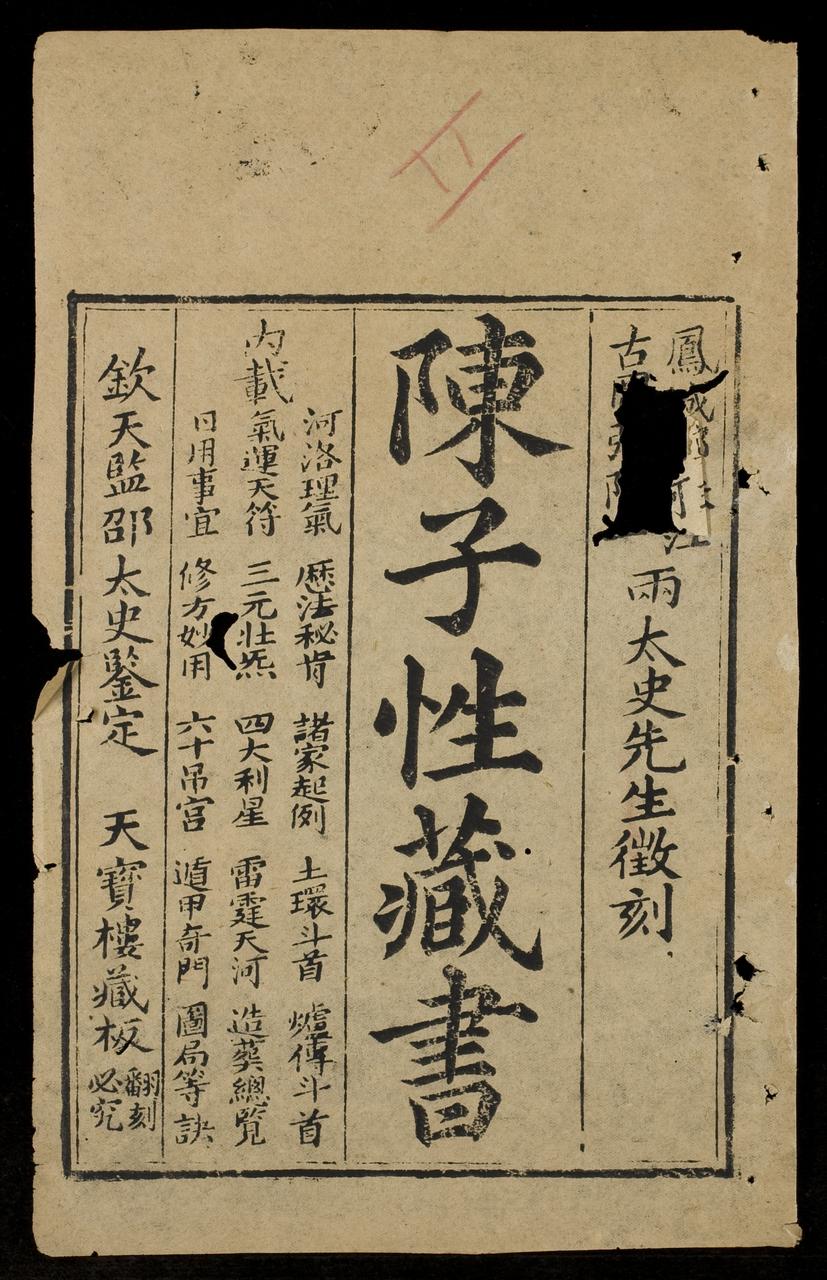 鳳城
古
兩太史先生徵刻
陳子性藏書
内載
河洛理氣 歷法秘肯 諸家起例 土環斗首 爐傳斗首
氣運天符 三元壯炁 四大利星 雷霆天河 造葬總覽
日用事宜 修方妙用 六十吊宮 遁甲奇門 圖局等訣
欽天監邵太史鑒定 天寶樓藏板
翻刻
必究